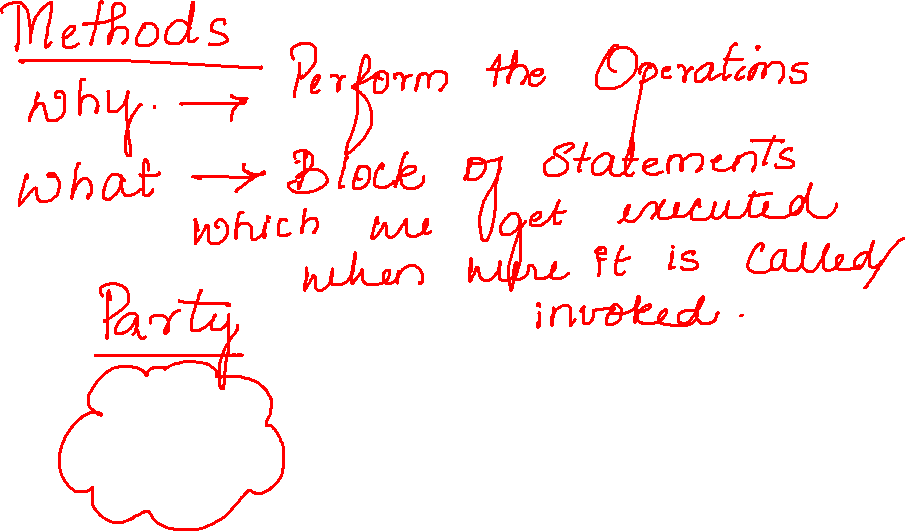 Methods
Why. → Perform the Operations
What → Block of Statements
which are get executed
when where it is called/
invoked.
Party